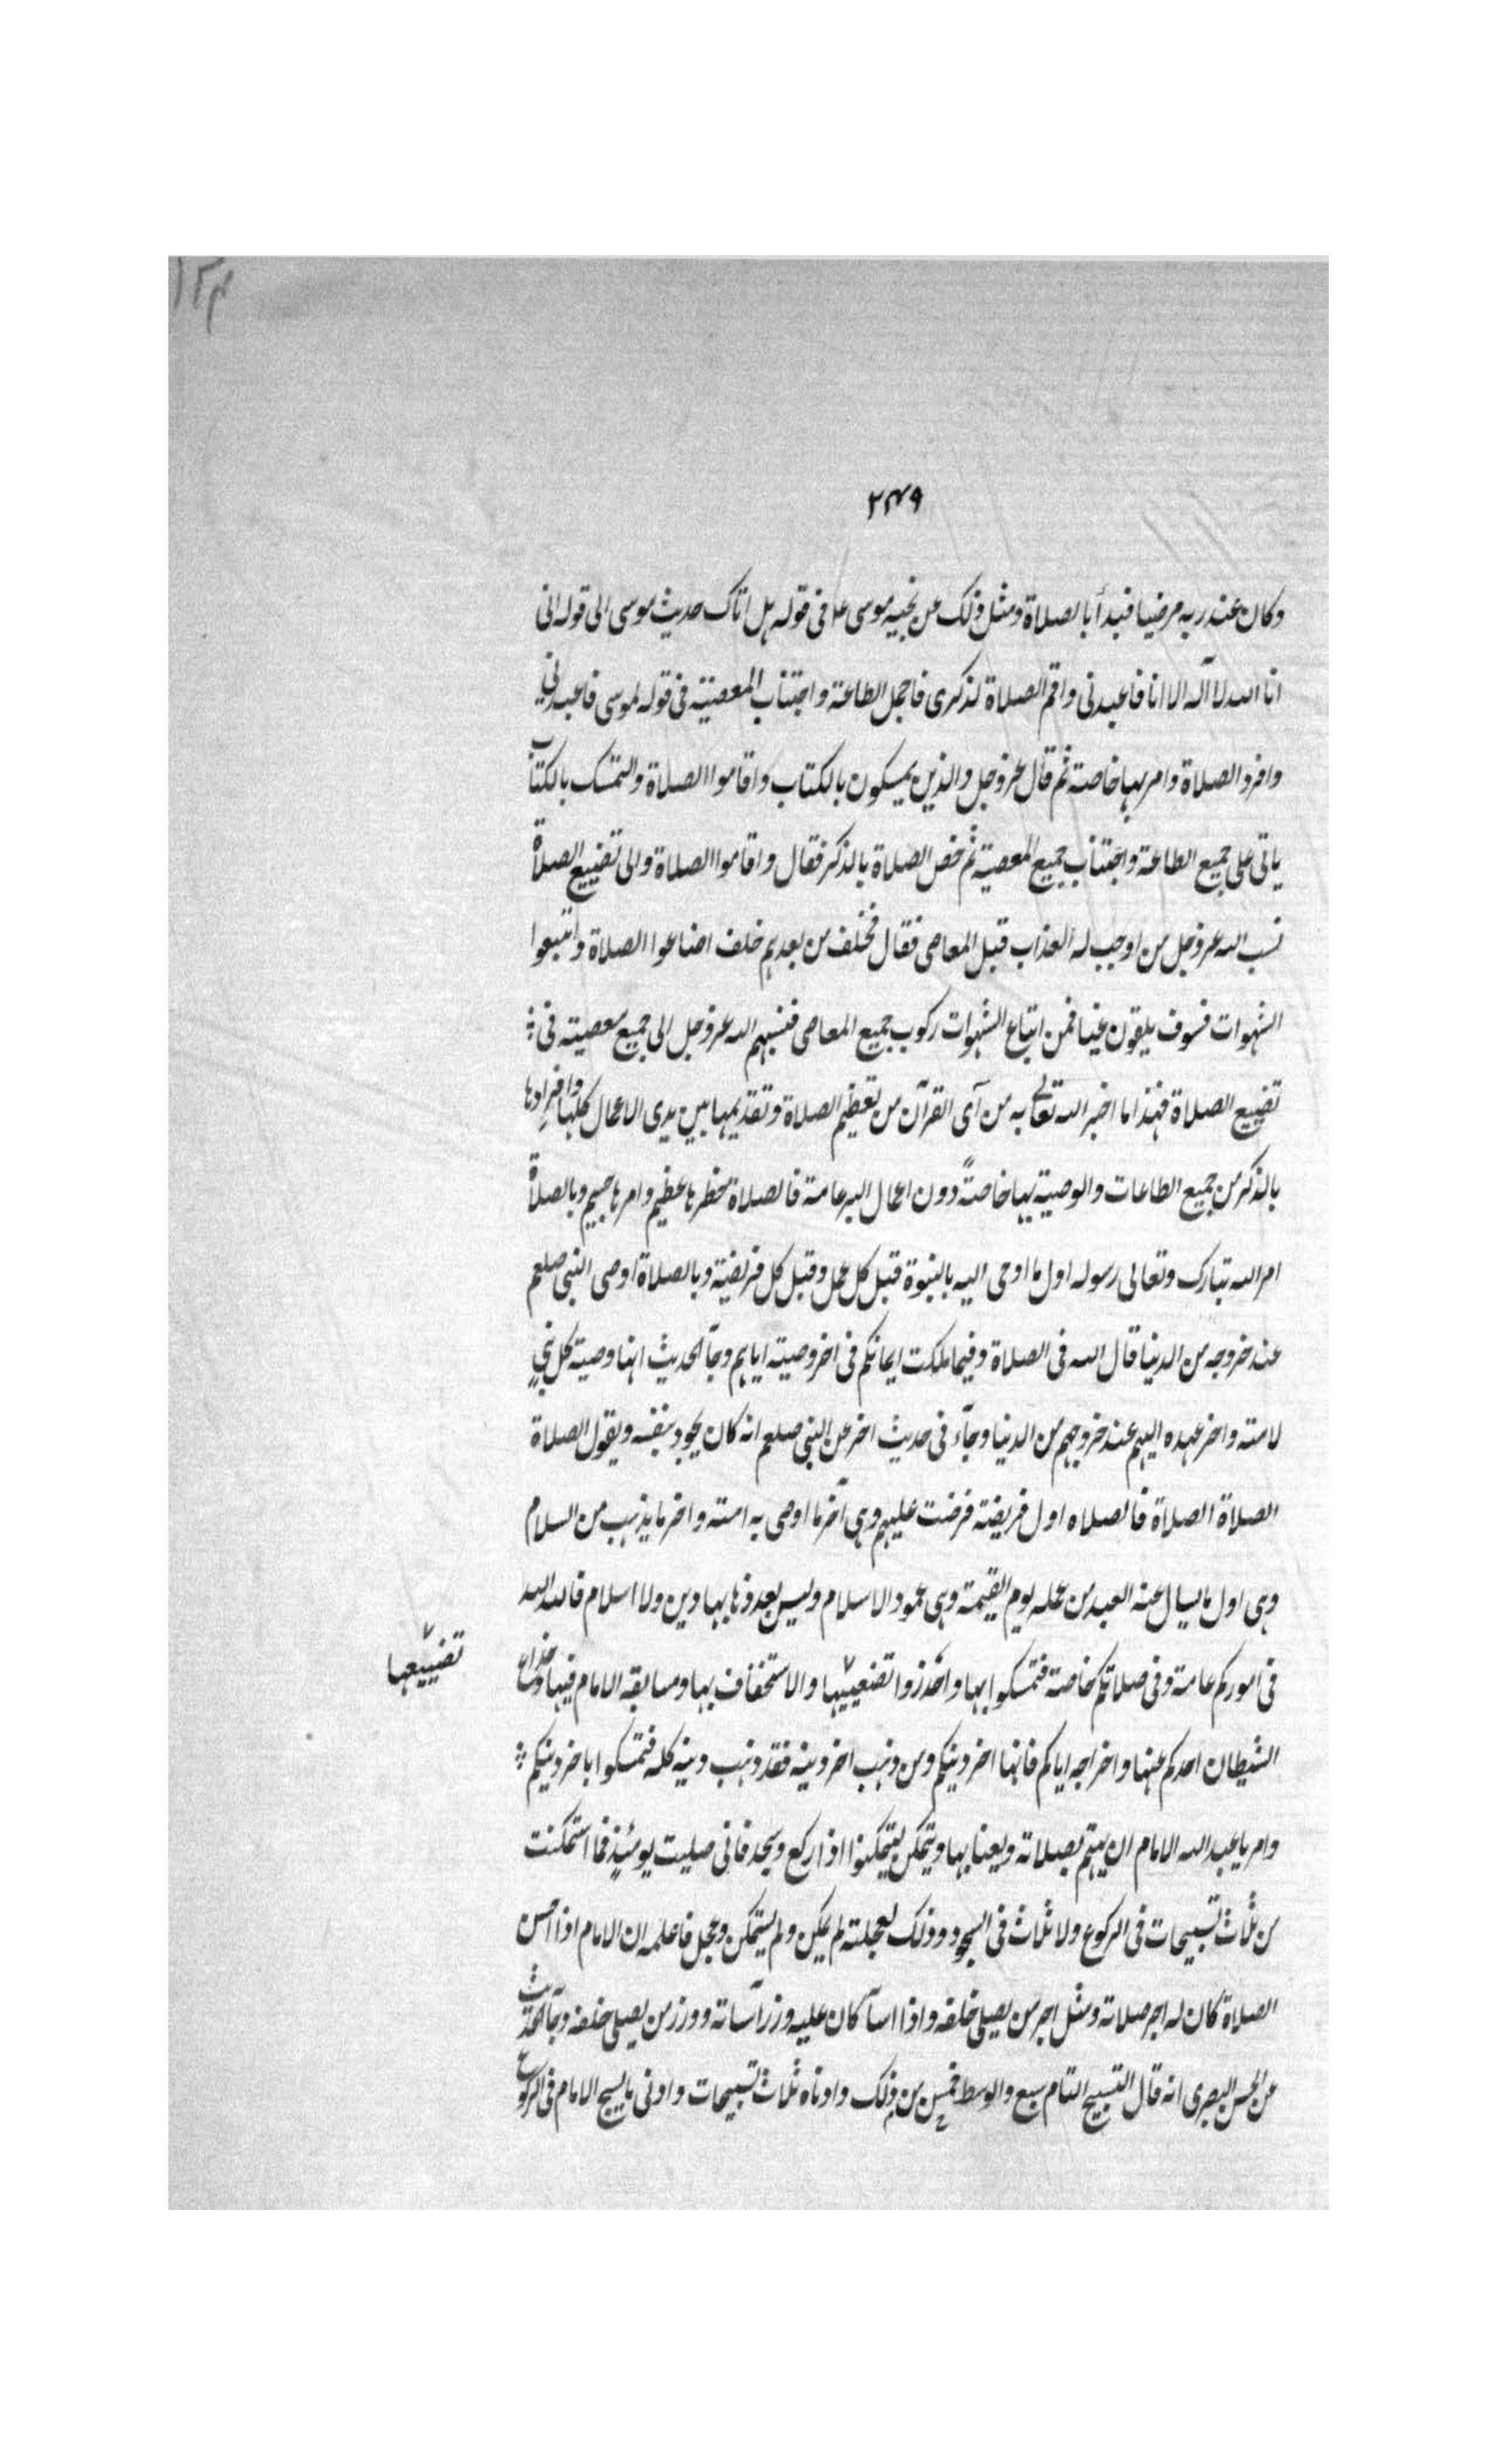 ١٢٤
٢٤٩
وكان عند ربه مرضيا فبدأ بالصلاة ومثل ذلك عن نجيه موسى ع م فى قوله هل اتاك حديث موسى الى قوله انى
انا الله لا آله الا انا فاعبدنى واقم الصلاة لذكرى فاجمل الطاعة واجتناب المعصية فى قوله لموسى فاعبدنى
وافرد الصلاة وامر بها خاصة ثم قال عز وجل والذين يمسكون بالكتاب واقاموا الصلاة والتمسك بالكتاب
ياتى على جميع الطاعة واجتناب جميع المعصية ثم خص الصلاة بالذكر فقال واقاموا الصلاة والى تضييع الصلاة
نسب الله عز وجل من اوجب له العذاب قبل المعاصى فقال فخلف من بعدهم خلف اضاعوا الصلاة واتبعوا
الشهوات فسوف يلقون غيا فمن اتباع الشهوات ركوب جميع المعاصى فنسبهم الله عز وجل الى جميع معصيته فى
تضييع الصلاة فهذا ما اخبر الله تعالى به من آى القرآن من تعظيم الصلاة وتقديمها بين يدى الاعمال كلها وافرادها
بالذكر من جميع الطاعات والوصية بها خاصةً دون اعمال البر عامة فالصلاة خطرها عظيم وامرها جسيم وبالصلاة
امر الله تبارك وتعالى رسوله اول ما اوحى اليه بالنبوة قبل كل عمل وقبل كل فريضة وبالصلاة اوصى النبى صلعم
عند خروجه من الدنيا قال الله فى الصلاة وفيما ملكت ايمانكم فى اخر وصيته اياهم وجآ الحديث انها وصية كل نبى
لامته واخر عهده اليهم عند خروجهم من الدنيا وجآء فى حديث اخر عن النبى صلعم انه كان يجود بنفسه ويقول الصلاة
الصلاة الصلاة فالصلاه اول فريضة فرضت عليهم وهى آخر ما اوصى به امته واخر ما يذهب من السلام
وهى اول ما يسال عنه العبد من عمله يوم القيمة وهى عمود الاسلام وليس بعد ذهابها دين ولا اسلام فالله الله
فى اموركم عامة وفى صلاتكم خاصة فتمسكوا بها واحذروا تضعييها والاستخفاف بها ومسابقة الامام فيها وخداع
تضييعها
الشيطان احدكم عنها واخراجه اياكم فانها اخر دينكم ومن ذهب اخر دينه فقد ذهب دينه كله فتمسكوا باخر دينكم
وامر يا عبد الله الامام ان يهتم بصلاته ويعنا بها ويتمكن ليتمكنوا اذا ركع وسجد فانى صليت يومئذٍ فما استمكنت
من ثلاث تسبيحات فى الركوع ولا ثلاث فى السجود وذلك لعجلته لم يمكن ولم يستمكن وعجل فاعلمه ان الامام اذا احسن
الصلاة كان له اجر صلاته ومثل اجر من يصلى خلفه واذا اسآ كان عليه وزر آساته ووزر من يصلى خلفه وجآ الحديث
عن الحسن البصرى انه قال التسبيح التام سبع والوسط خمس من ذلك وادناه ثلاث تسبيحات وادنى ما يسبح الامام فى الركوع